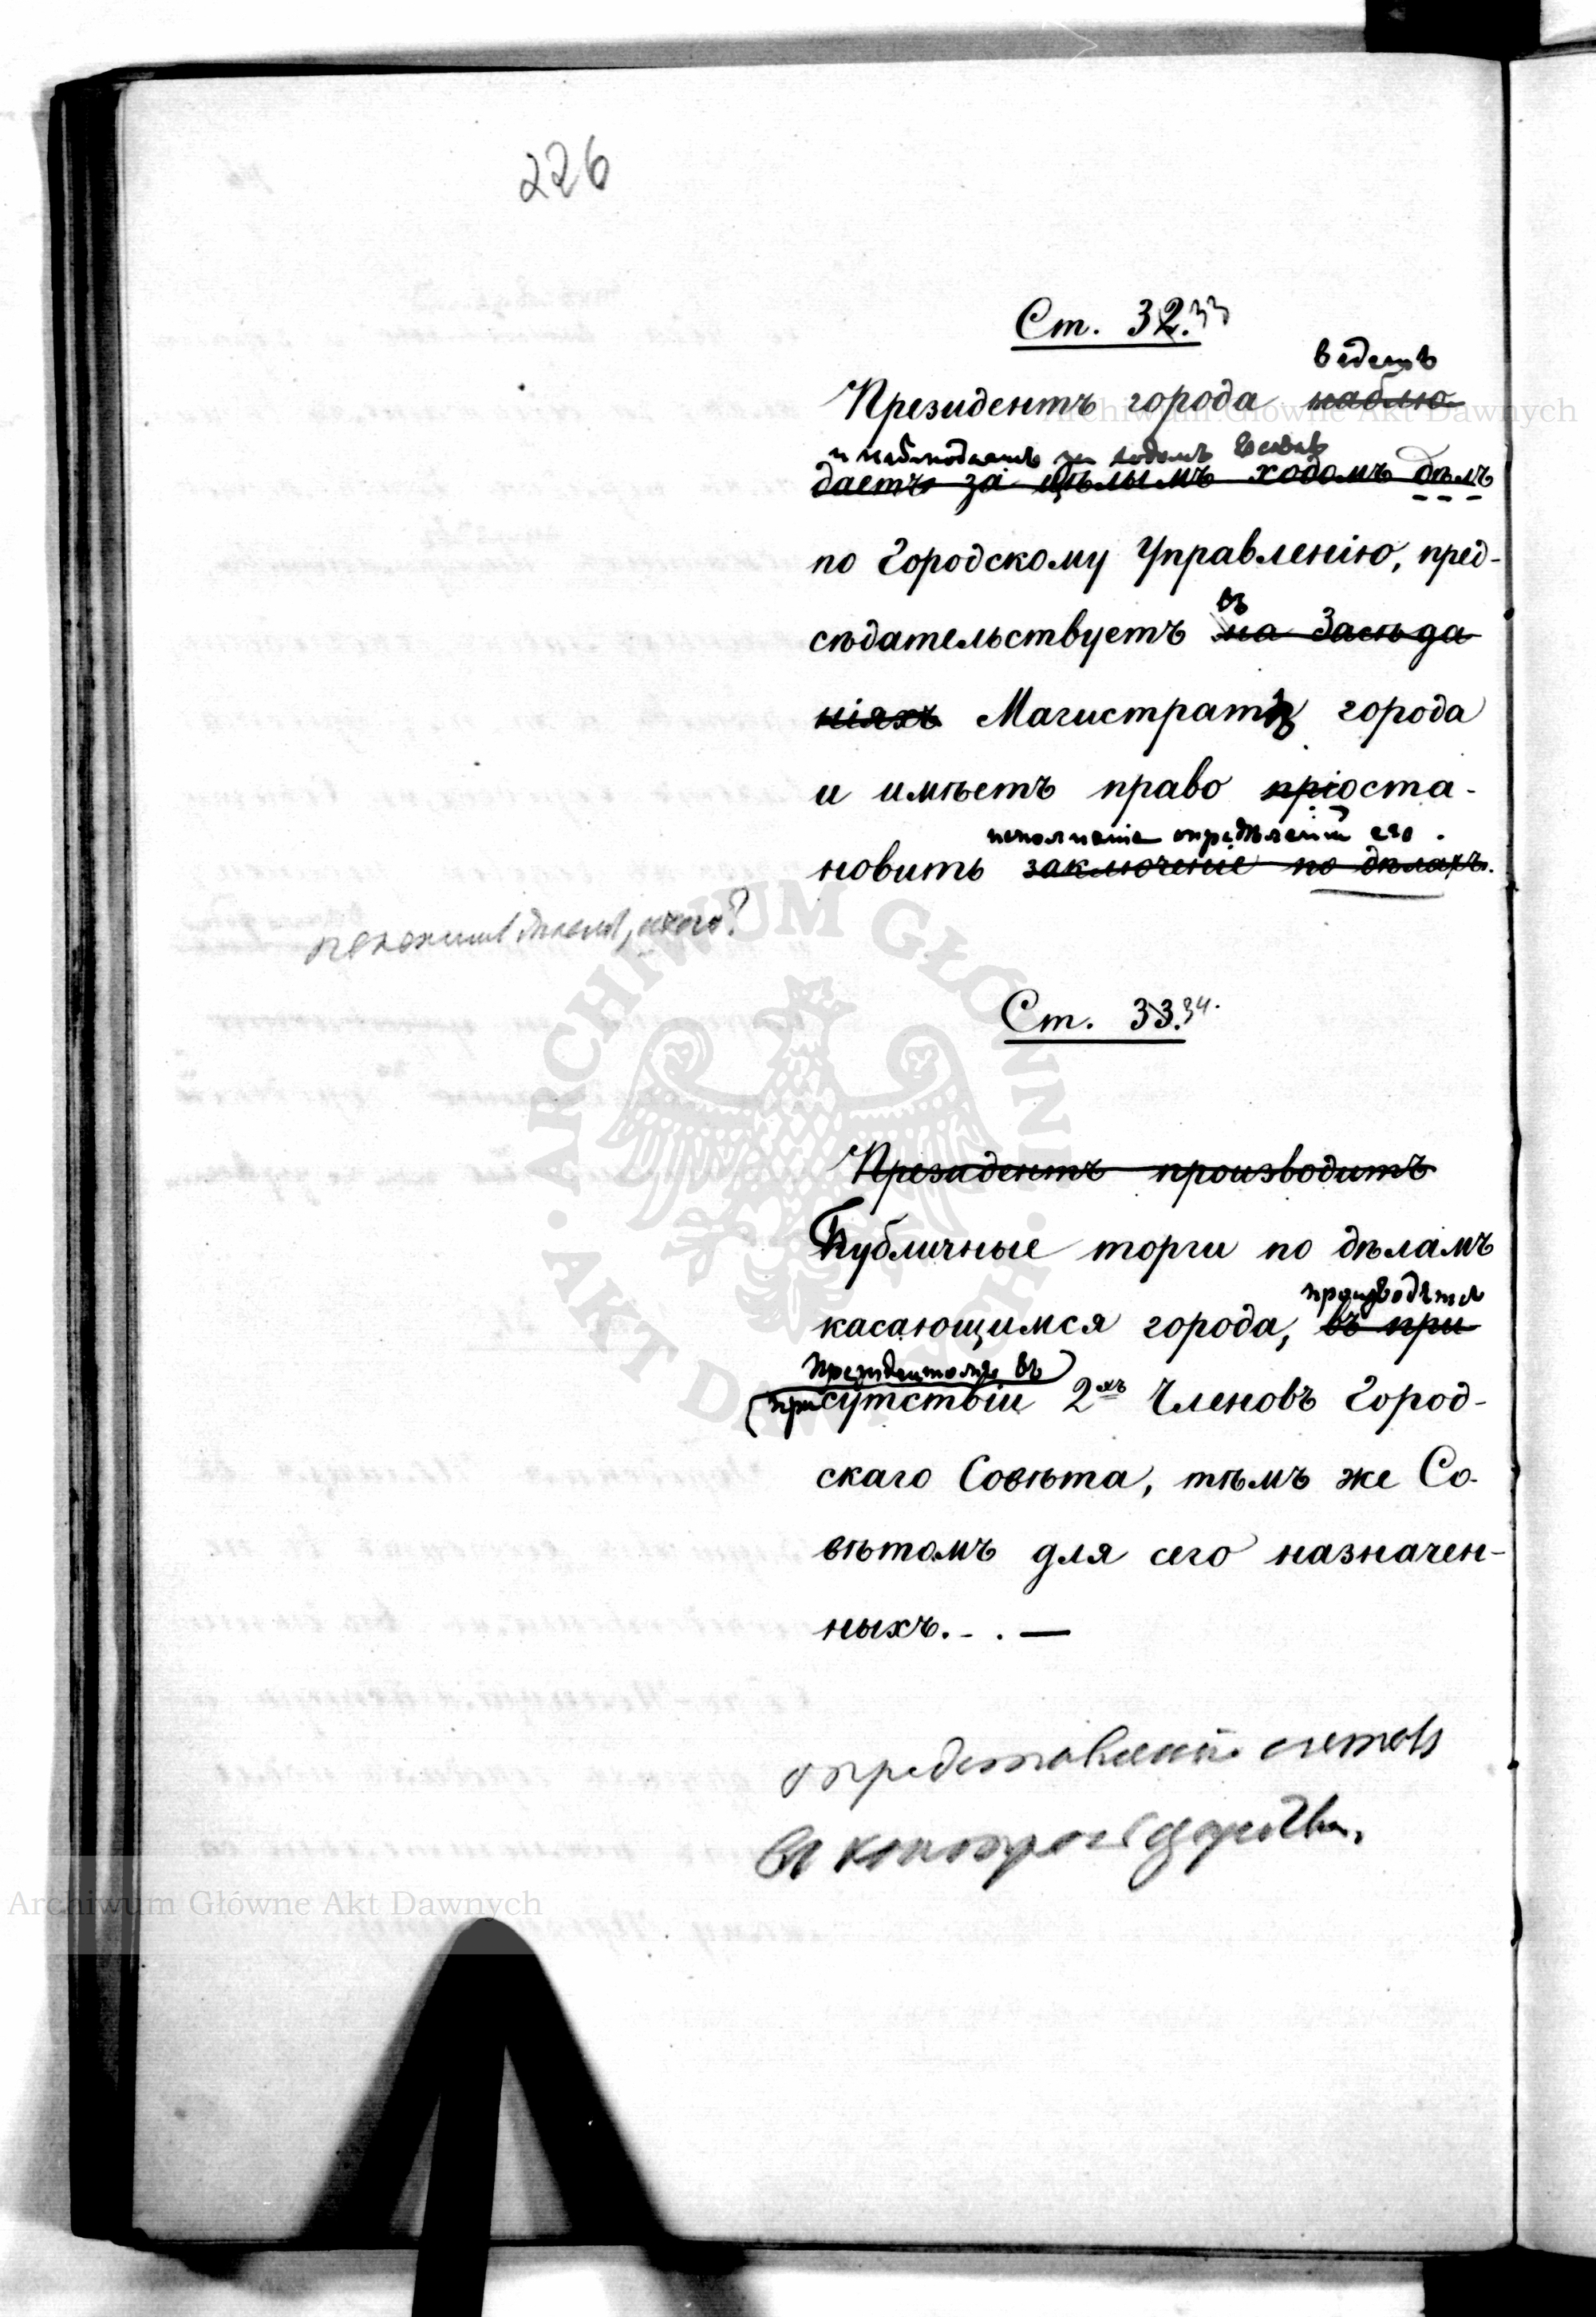 226
Ст. 32. 33
ведетъ
Президентъ города наблю-
и наблюдаетъ за ходомъ всѣхъ
даетъ за цѣлымъ ходомъ дѣлъ
по Городскому Управленію, пред-
въ
сѣдательствуетъ на Засѣда
ніяхъ Магистратѣ города
и имѣетъ право пріоста-
исполненіе опредѣленій его.
новить заключеніе по дѣлахъ.
Ст. 33. 34.
Президентъ производитъ
Публичные торги по дѣламъ
производятся
касающимся города, въ при
Президентомъ въ
присутствіи 2хъ Членовъ Город-
скаго Совѣта, тѣмъ же Со-
вѣтомъ для сего назначен-
ныхъ. - . —
ARCHIWUM GŁÓWNE AKT DAWNYCH
Archiwum Główne Akt Dawnych
Archiwum Główne Akt Dawnych